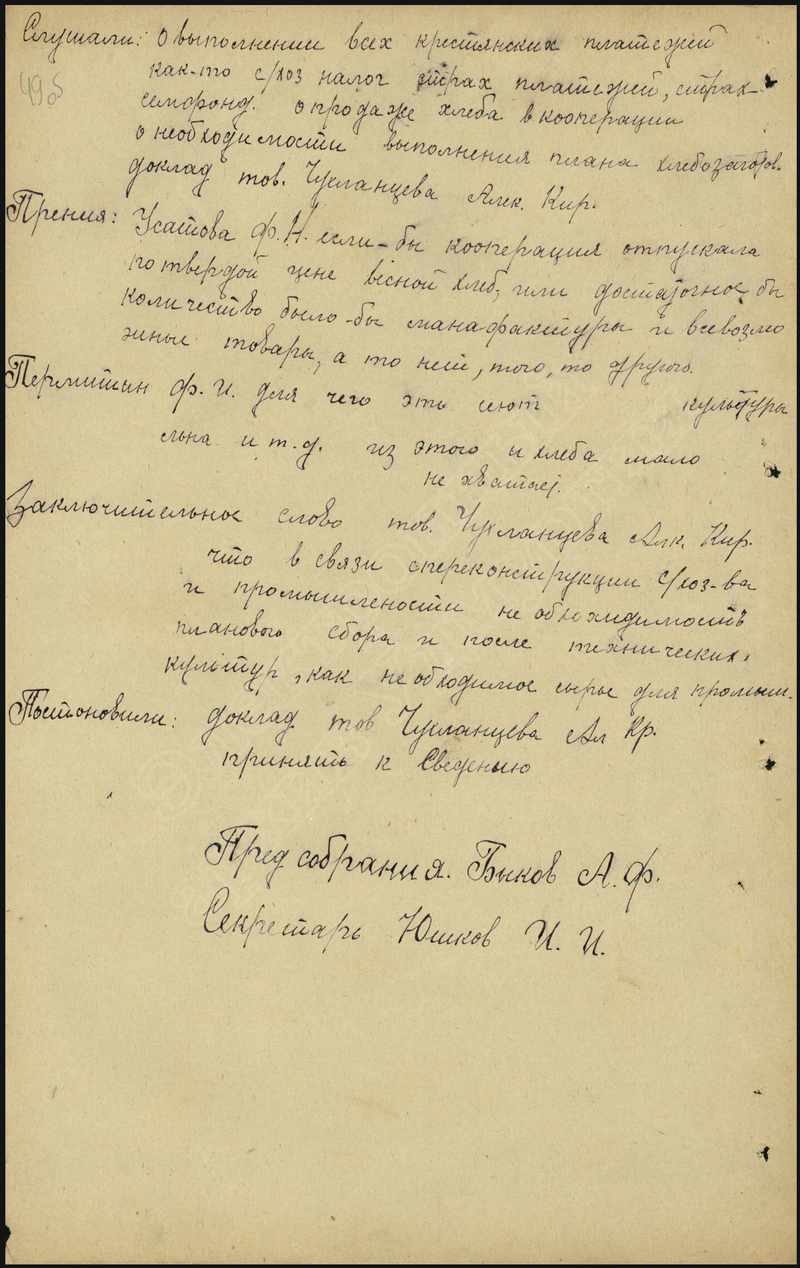 Слушали: О выполнении всех крестянских платежей
49об
как-то с/хоз налог страх платежей, страх-
семфонд. о продаже хлеба в кооперации
о необходимости выполнения плана хлебозаготов.
доклад тов. Чухланцева Алек. Кир.
Прения: Усатова Ф.Н. если-бы кооперация отпускала
по твердой цене вісной хлеб, или достаточное бы
количество было-бы манафактуры и всевозмо
жные товары, а то нет, того, то другого.
Пермитин Ф. И. для чего эти сеют культуры
ельна и т.д. из этого и хлеба мало
не хватает.
Заключительное слово тов. Чухланцева Алк. Кир.
что в связи спереконструкции с/хоз-ва
и промышлености не обхохидимость
планового сбора и после технических
культур, как необходимое сырье для промыш.
Постоновили: доклад тов Чухланцева Ал Кр.
принять к Сведенью
Пред собрания. Быков А. Ф.
Секретарь Юшков И. И.